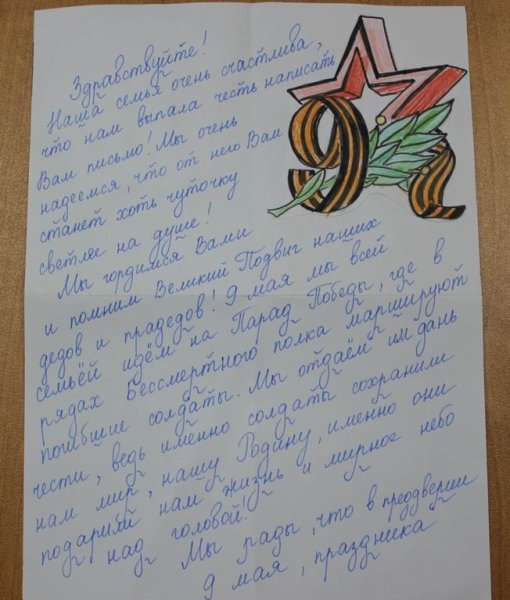 Здравствуйте!
Наша семья очень счастлива,
что нам выпала честь написать
Вам письмо! Мы очень
надеемся, что от него Вам
станет хоть чуточку
светлее на душе!
Мы гордимся Вами
и помним Великий Подвиг наших
дедов и прадедов! 9 мая мы всей
семьёй идём на Парад Победы, где в
рядах Бессмертного полка маршируют
погибшие солдаты. Мы отдаём им дань
чести, ведь именно солдаты сохранили
нам мир, нашу Родину, именно они
подарили нам жизнь и мирное небо
над головой!
Мы рады, что в преддверии
9 мая, праздника
9